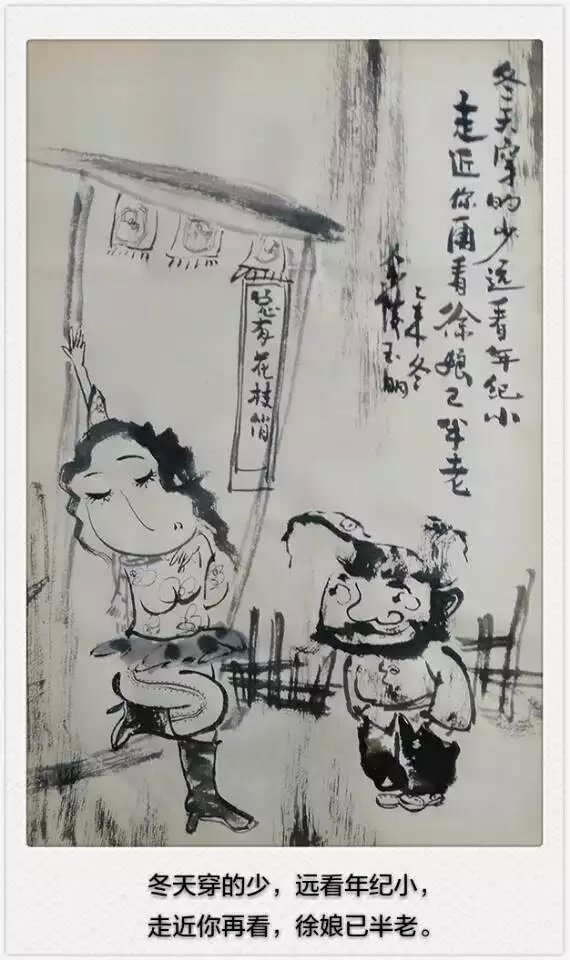 冬天穿的少远看年纪小
走近你再看徐娘已半老
乙未冬
玉明
总有花枝俏
冬天穿的少，远看年纪小，
走近你再看，徐娘已半老。